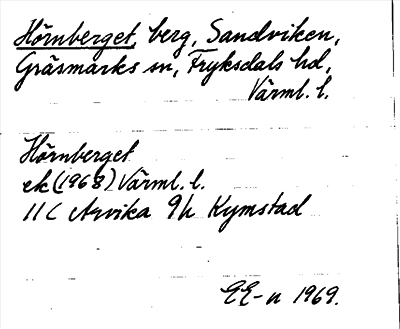 Hörnberget, berg, Sandviken,
Gräsmarks sn, Fryksdals hd,
Värml. l.
Hörnberget
ek (1968) Värml. l.
11C Arvika 9h Kymstad
EE-n 1969.